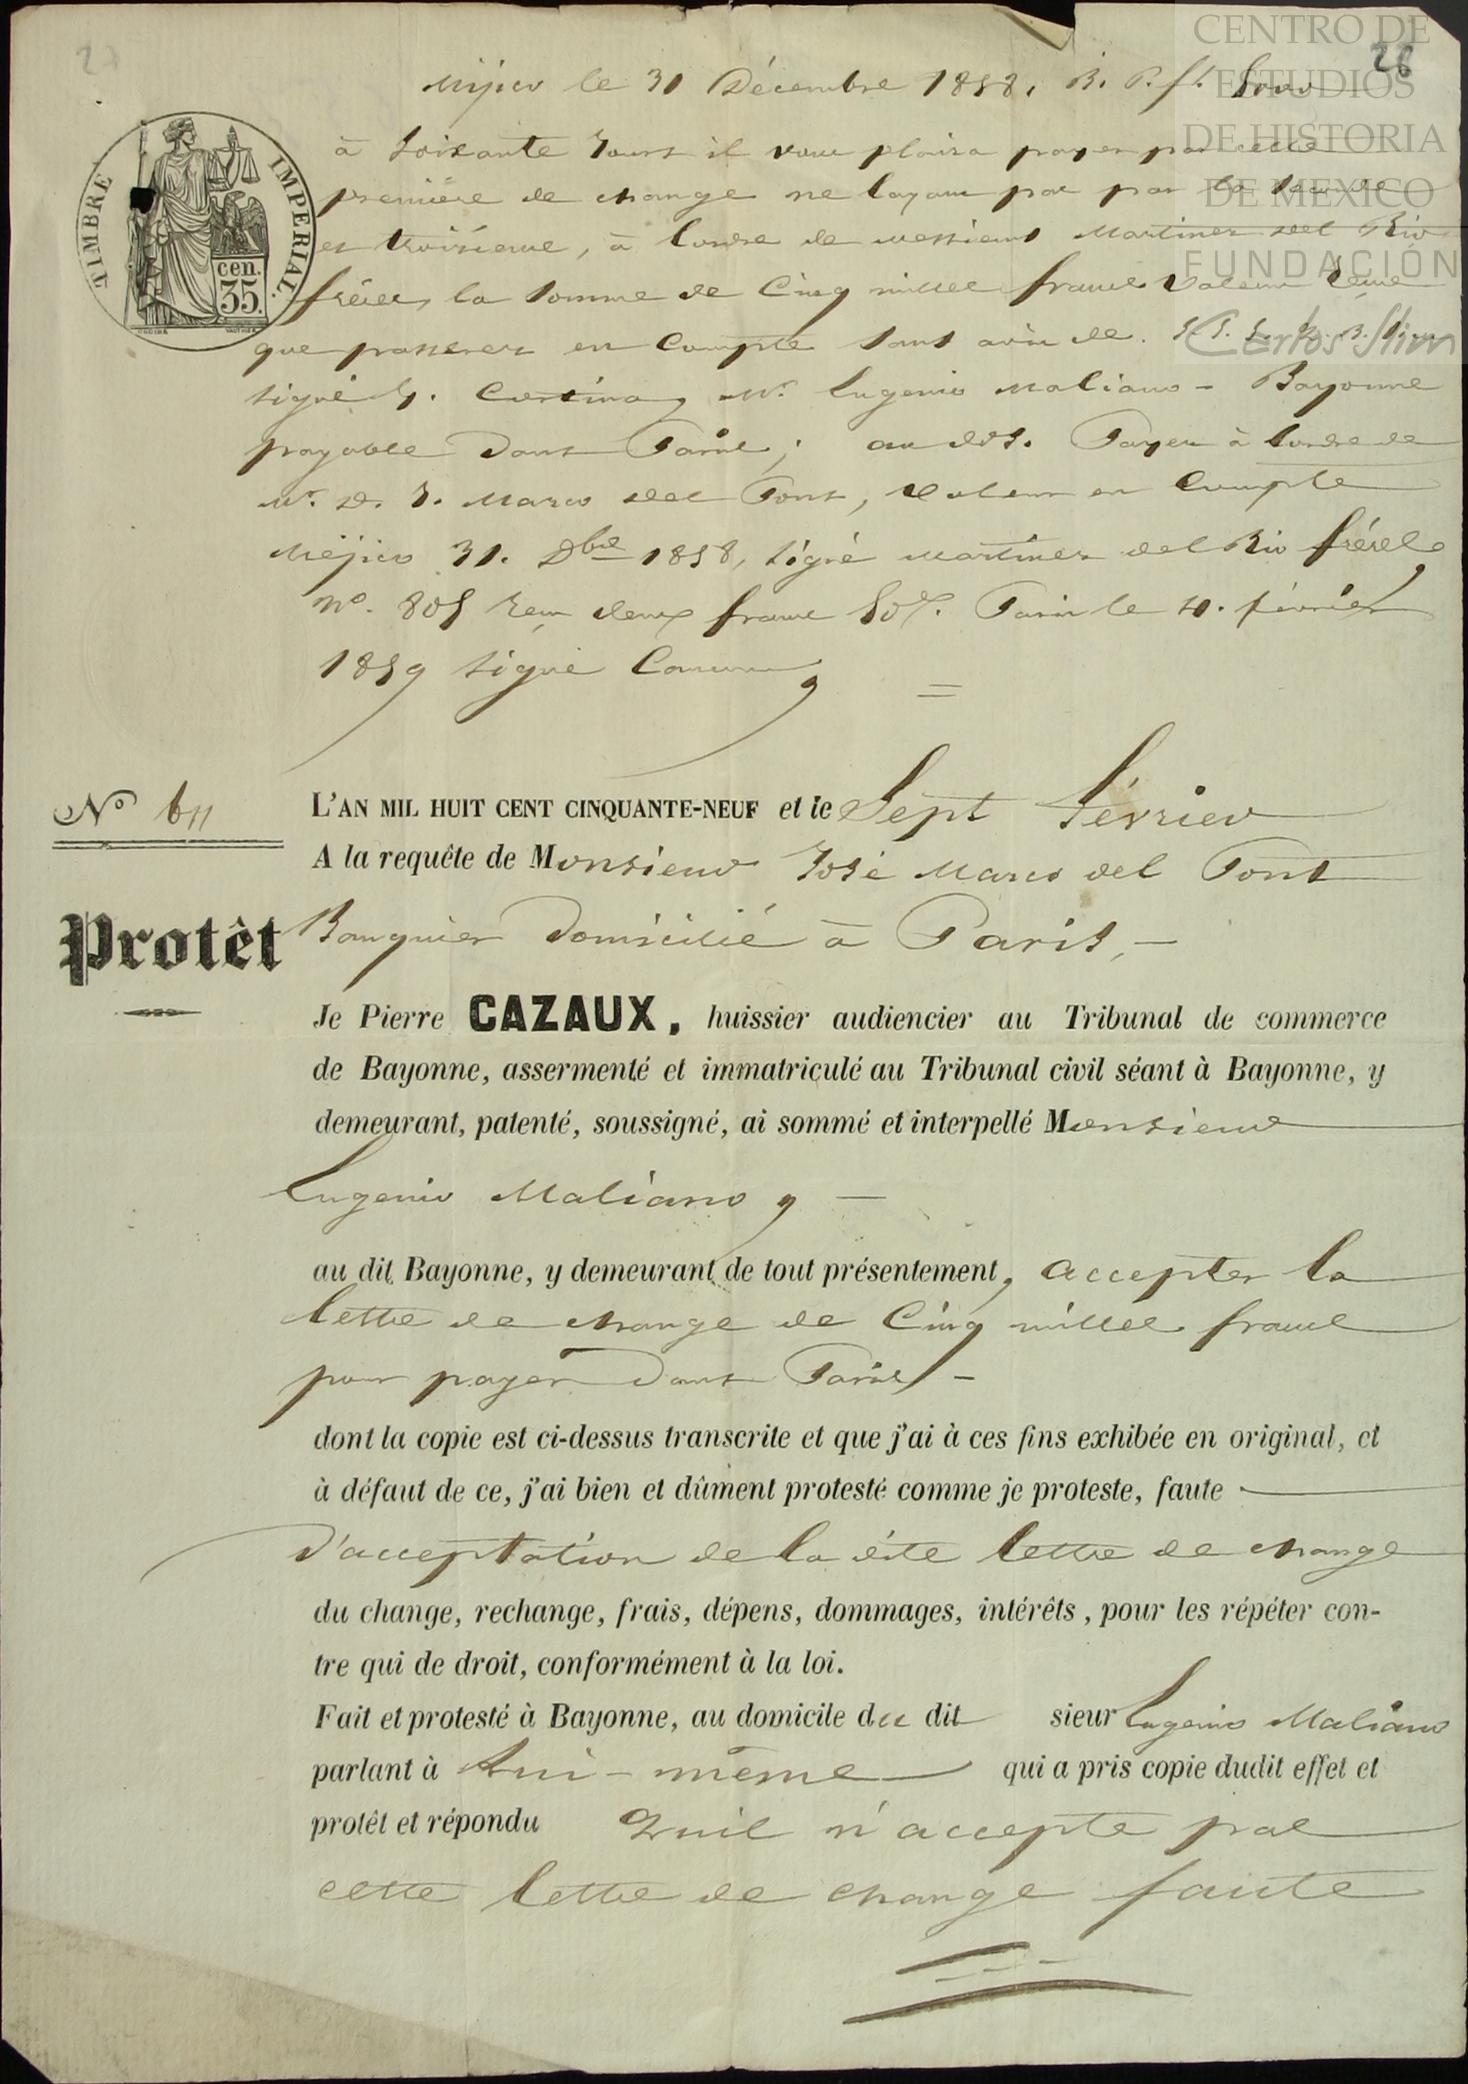 27
28
CENTRO DE
ESTUDIOS
DE HISTORIA
DE MEXICO
FUNDACIÓN
Carlos Slim
TIMBRE IMPÉRIAL.
cen.
35.
Méjico le 31 Décembre 1858, B. P. f.
à Soixante Jours il vous plaira payer par cette
première de change ne layant pas par la seconde
et troisième, à lordre de messieurs Martinez del Rio
frères, la somme de Cinq milles francs Valeur
que passerez en Compte sans avis de.
signé J. Cortina, Mr. Eugenio Maliano - Bayonne
payable dans Paris; au dos. Payez à lordre de
Mr. D. J. Marco del Pont, Valeur en Compte
Méjico 31. Dbre 1858, signé Martinez del Rio frères
No. 805 deux francs 50c. Paris le février
1859 signé
No 611
Protêt
L'AN MIL HUIT CENT CINQUANTE-NEUF et le Sept février
A la requête de Monsieur José Marco del Pont
Banquier Domicilié à Paris, -
Je Pierre CAZAUX, huissier audiencier au Tribunal de commerce
de Bayonne, assermenté et immatriculé au Tribunal civil séant à Bayonne, y
demeurant, patenté, soussigné, ai sommé et interpellé Monsieur
Eugenio Maliano, -
au dit Bayonne, y demeurant de tout présentement, accepter la
lettre de change de Cinq milles francs
pour payer dans Paris -
dont la copie est ci-dessus transcrite et que j'ai à ces fins exhibée en original, et
à défaut de ce, j'ai bien et dûment protesté comme je proteste, faute
d'acceptation de la dite lettre de change
du change, rechange, frais, dépens, dommages, intérêts, pour les répéter con-
tre qui de droit, conformément à la loi.
Fait et protesté à Bayonne, au domicile du dit sieur Eugenio Maliano
parlant à lui-même qui a pris copie dudit effet et
protêt et répondu quil n'accepte pas
cette lettre de change faute